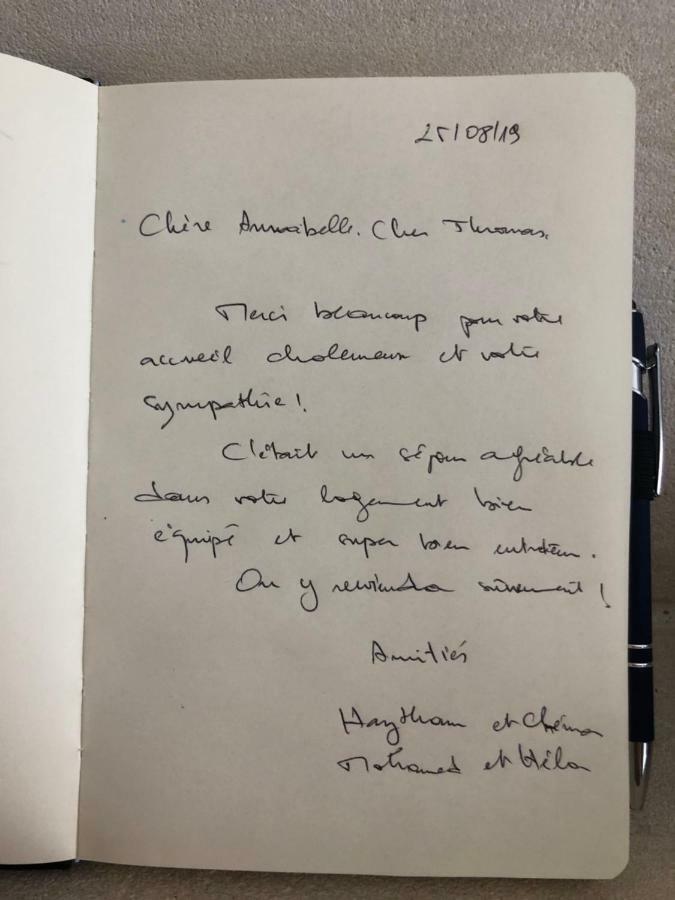 25/08/19
Chère Annabelle. Cher Thomas,
Merci beaucoup pour votre
accueil chaleureux et votre
sympathie !
C'était un séjour agréable
dans votre logement bien
équipé et super bien entretenu.
On y reviendra sûrement !
Amitiés
Haytham et
Mohamed et Héla